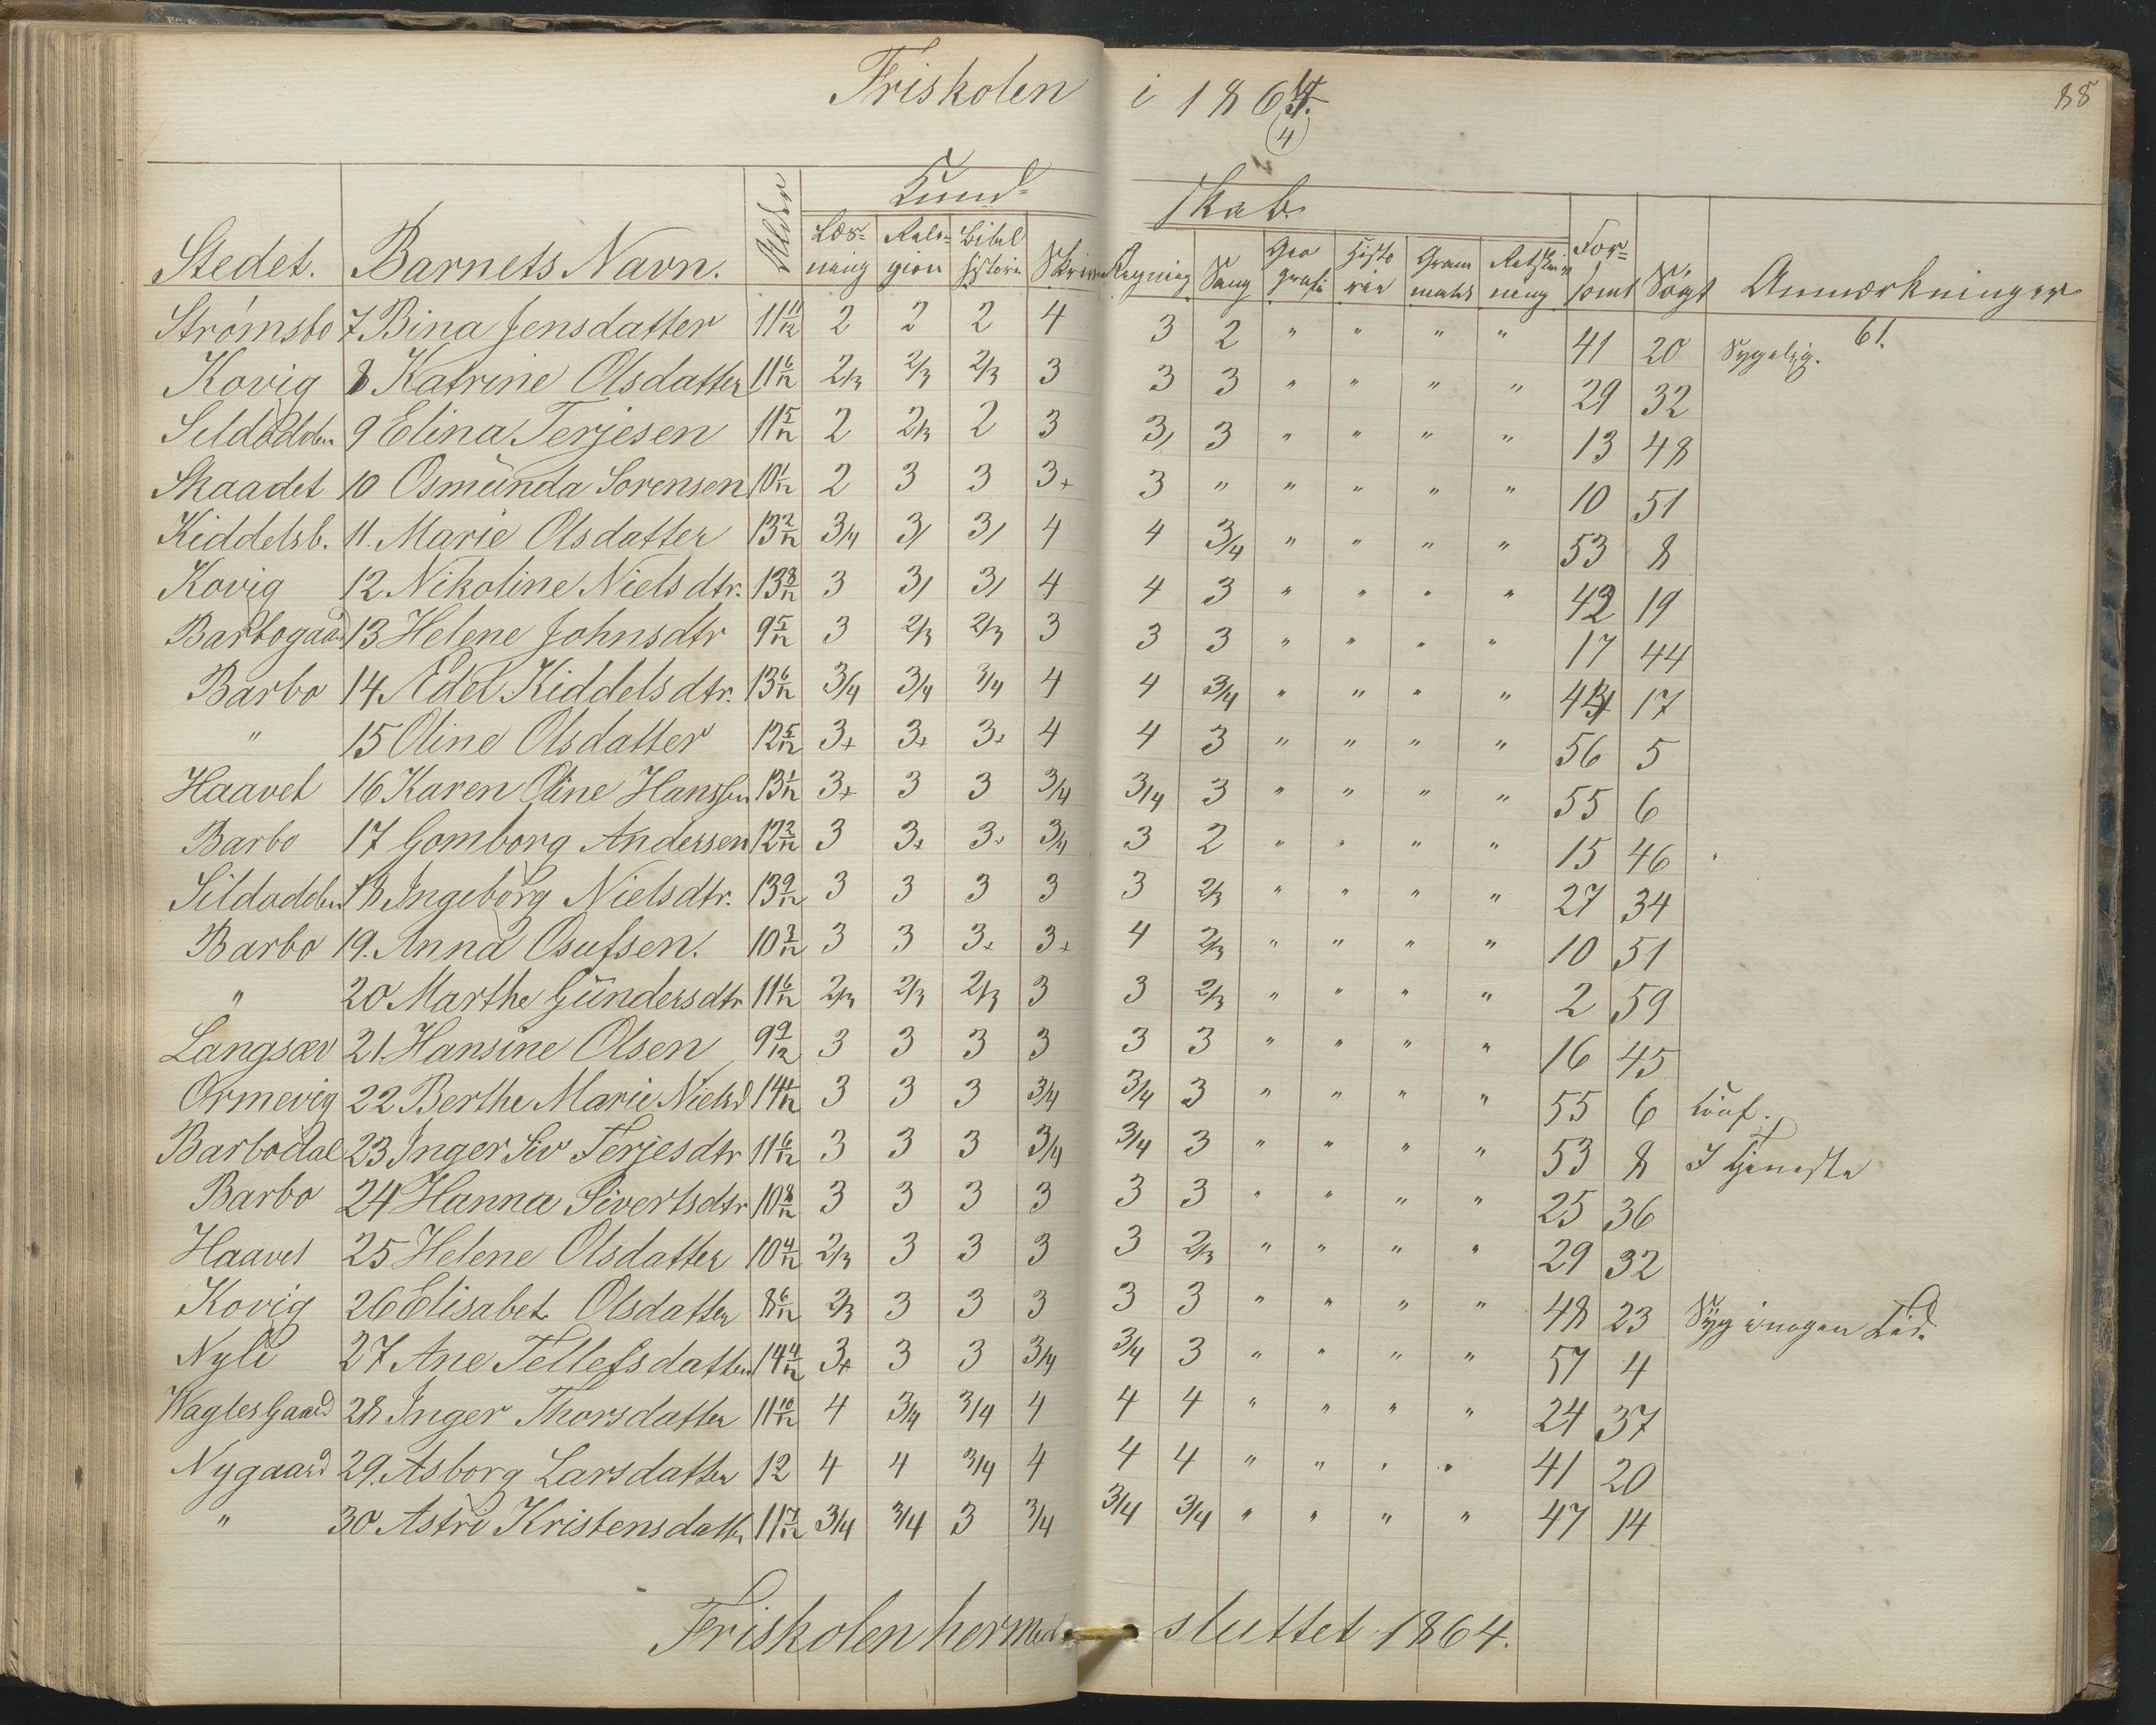 Friskolen i 1864.
88
4
Kund- skab.
Stedet. Barnets Navn. Alder Læs-ning Reli-gion Bibel historie Skrivn Regning Sang Geo grafi Histo rie Gram matik Retskriv ning For-sømt Søgt Anmærkninger
Strømsbo 7 Bina Jensdatter 11 11/12 2 2 2 4 3 2 " " " " 41 20 Sygelig. 61.
Kovig 8 Katrine Olsdatter 11 6/12 2/3 2/3 2/3 3 3 3 " " " " 29 32
Sildodden 9 Elina Terjesen 11 5/12 2 2/3 2 3 3/ 3 " " " " 13 48
Skaadet 10 Osmunda Sorensen 10 1/12 2 3 3 3+ 3 " " " " " 10 51
Kiddelsb. 11. Marie Olsdatter 13 2/12 3/4 3/ 3/ 4 4 3/4 " " " " 53 8
Kovig 12 Nikoline Niels dtr. 13 8/12 3 3/ 3/ 4 4 3 " " " " 42 19
Barbogaard 13 Helene Johnsdtr 9 5/12 3 2/3 2/3 3 3 3 " " " " 17 44
Barbo 14 Edel Kiddels dtr. 13 6/12 3/4 3/4 3/4 4 4 3/4 " " " " 44 17
" 15 Oline Olsdatter 12 5/12 3+ 3+ 3+ 4 4 3 " " " " 56 5
Haavet 16 Karen Oline Hanssen 13 1/12 3+ 3 3 3/4 3/4 3 " " " " 55 6
Barbo 17 Gomborg Andersen 12 2/12 3 3+ 3+ 3/4 3 2 " " " " 15 46
Sildodden 18 Ingeborg Nielsdtr. 13 9/12 3 3 3 3 3 2/3 " " " " 27 34
Barbo 19. Anna Osufsen. 10 3/12 3 3 3+ 3+ 4 2/3 " " " " 10 51
" 20 Marthe Gundersdtr 11 6/12 2/3 2/3 2/3 3 3 2/3 " " " " 2 59
Langsæv 21. Hansine Olsen 9 9/12 3 3 3 3 3 3 " " " " 16 45
Ormevig 22 Berthe Marie Nielsd 14 1/12 3 3 3 3/4 3/4 3 " " " " 55 6 Conf.
Barbodal 23 Inger Siv Terjesdtr 11 6/12 3 3 3 3/4 3/4 3 " " " " 53 8 I Tjeneste
Barbo 24 Hanna Sivertsdtr 10 8/12 3 3 3 3 3 3 " " " " 25 36
Haavet 25 Helene Olsdatter 10 4/12 2/3 3 3 3 3 2/3 " " " " 29 32
Kovig 26 Elisabet Olsdatter 8 6/12 2/3 3 3 3 3 3 " " " " 48 23 Syg i nogen Tid.
Nyli 27 Ane Tellefsdatter 14 4/12 3+ 3 3 3/4 3/4 3 " " " " 57 4
Waglesgaard 28 Inger Thorsdatter 11 10/12 4 3/4 3/4 4 4 4 " " " " 24 37
Nygaard 29. Asborg Larsdatter 12 4 4 3/4 4 4 4 " " " " 41 20
" 30 Astri Kristensdatter 11 7/12 3/4 3/4 3 3/4 3/4 3/4 " " " " 47 14
Friskolen hermed sluttet 1864.